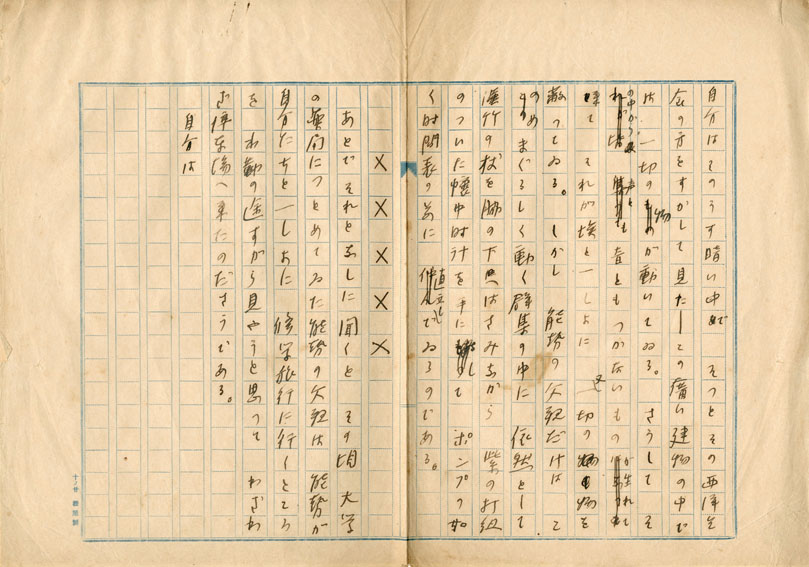 自分はそのうす暗い中で そつとその西洋乞
食の方をすかして見た――この い建物の中で
は 一切の物が動いてゐる。 さうして そ
の中から 声とも音ともつかないものが生れて
来て それが埃と一しよに 又一切の物を
蔽つてゐる。 しかし 能勢の父親だけは こ
のめまぐるしく動く群集の中に 依然として
漢竹の杖を脇の下にはさみながら 紫の打紐
のついた懐中時計を手にして ポンプの如
く時間表の前に 直立してゐるのである。
× × × × ×
あとでそれとなしに聞くと その頃 大学
の薬局につとめてゐた能勢の父親は 能勢が
自分たちと一しよに 修学旅行に行くところ
を 出勤の途すがら見やうと思つて わざわ
ざ停車場へ来たのださうである。
自分は
十ノ廿